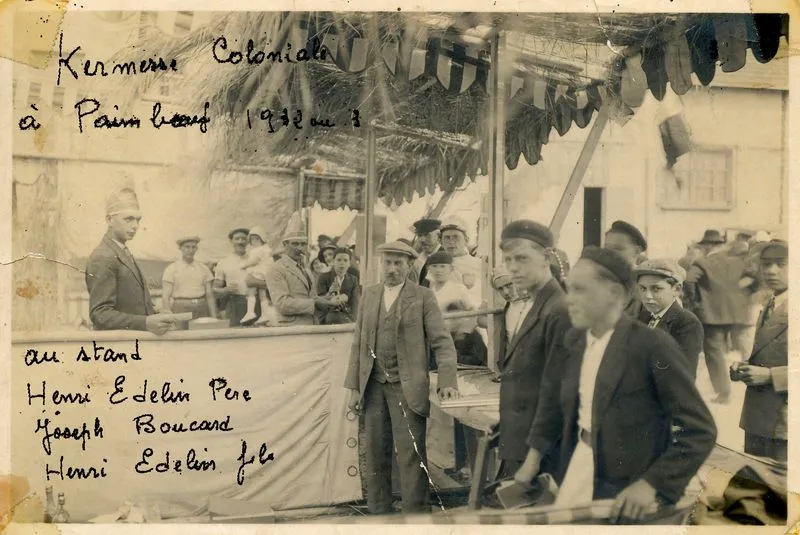 Kermesse Coloniale
à Paimboeuf 1932 ou 3
au stand
Henri Edelin Pere
Joseph Boucard
Henri Edelin fils